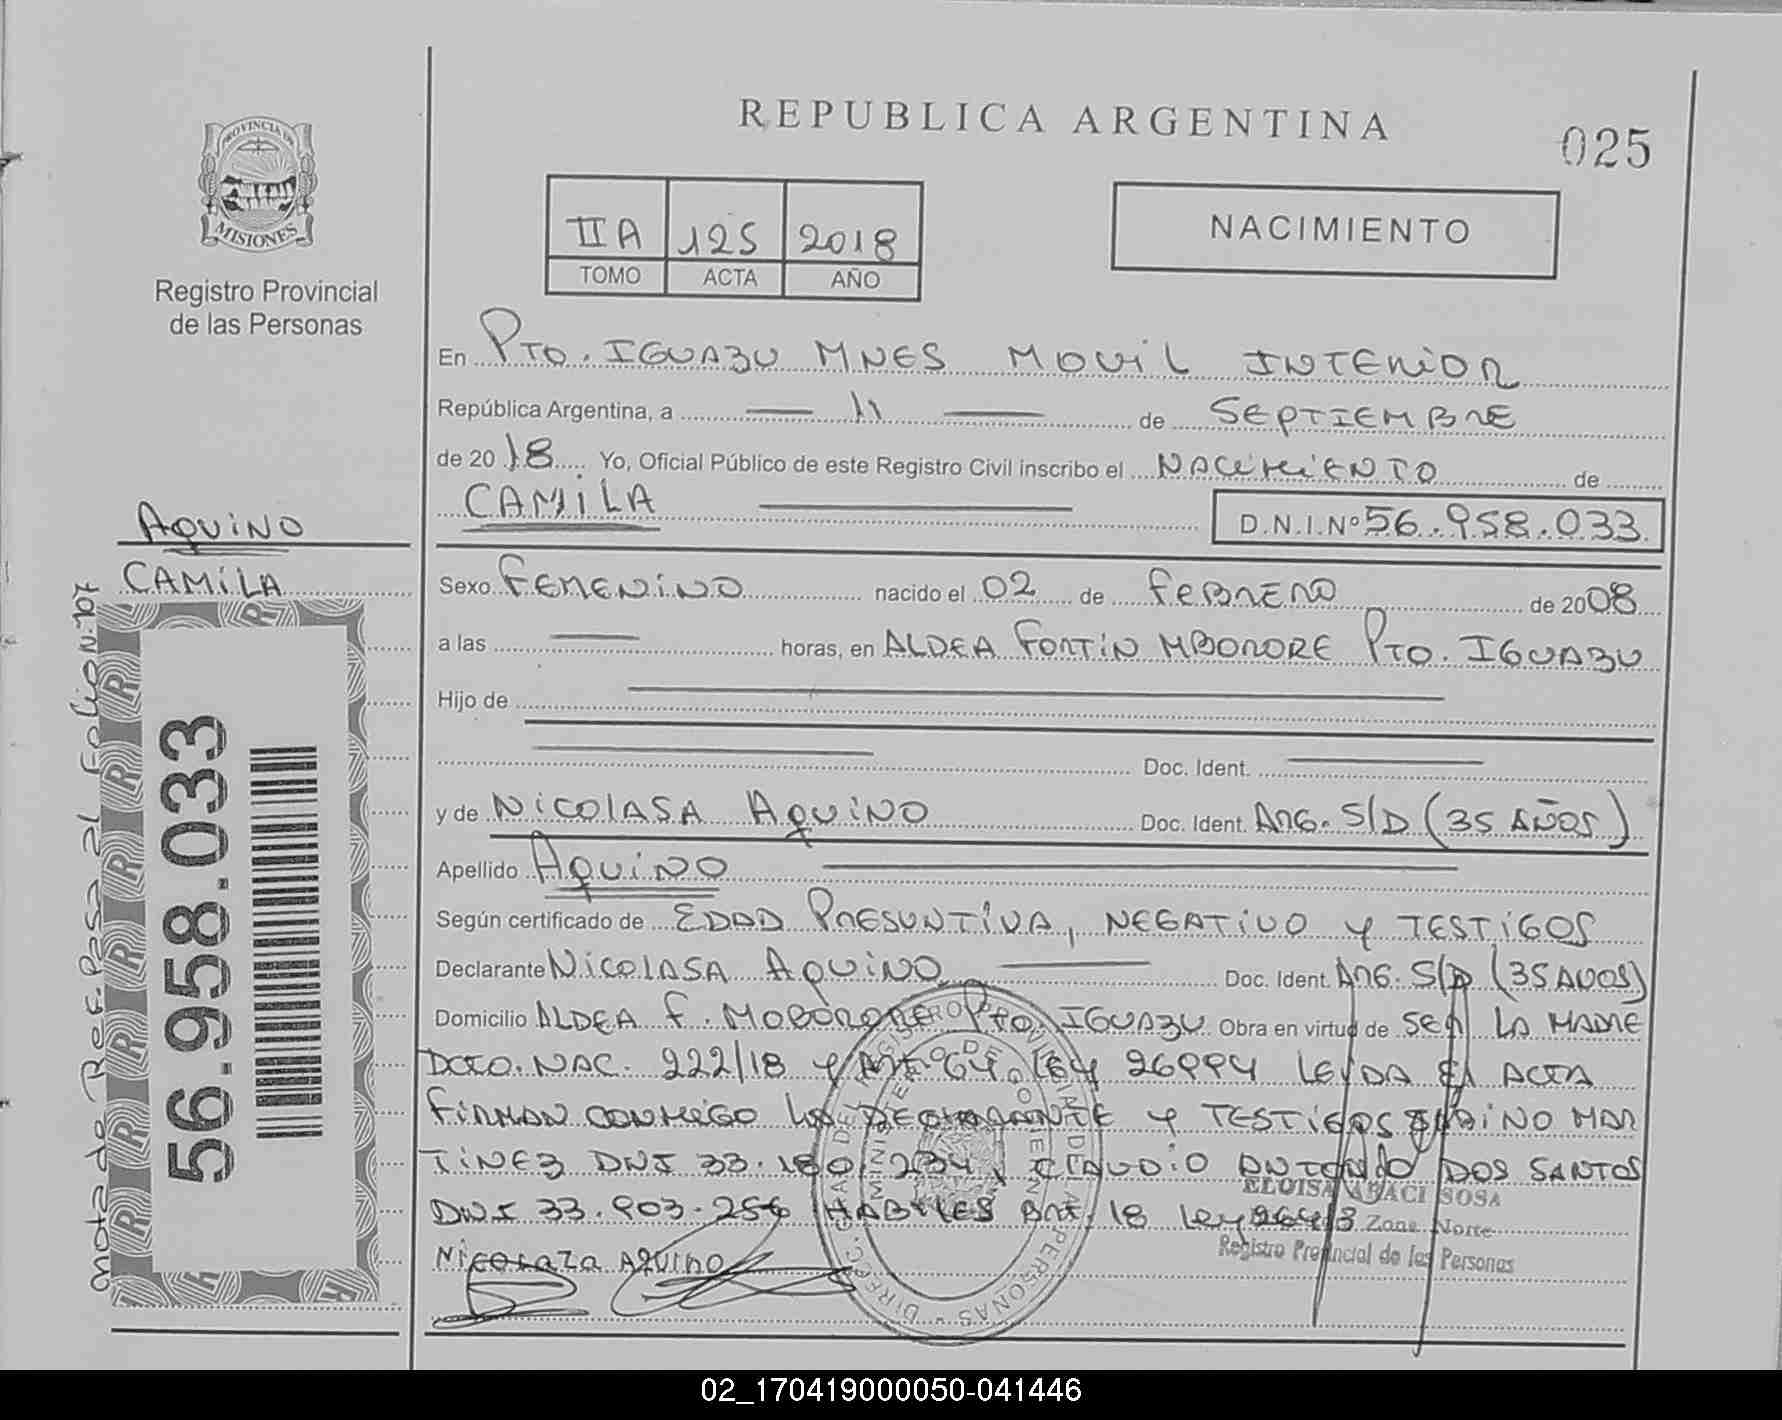 REPUBLICA ARGENTINA
025
PROVINCIA DE
MISIONES
Registro Provincial
de las Personas
II A 125 2018
TOMO ACTA AÑO
NACIMIENTO
En Pto. IGUAZU MNES MOVIL INTERIOR
República Argentina, a 11 de SEPTIEMBRE
de 2018 Yo, Oficial Público de este Registro Civil inscribo el NACIMIENTO de
CAMILA
D.N.I.Nº 56.958.033
AQUINO
CAMILA
Sexo FEMENINO nacido el 02 de FEBRERO de 2008
a las horas, en ALDEA FORTIN MBORORE Pto. IGUAZU
Hijo de
Doc. Ident.
y de NICOLASA AQUINO Doc. Ident. ARG. S/D (35 AÑOS)
Apellido AQUINO
Según certificado de EDAD PRESUNTIVA, NEGATIVO Y TESTIGOS
Declarante NICOLASA AQUINO Doc. Ident. ARG. S/D (35 AÑOS)
Domicilio ALDEA F. MOBORORE Pto. IGUAZU Obra en virtud de SER LA MADRE
DCTO. NAC. 222/18 Y ART. 64 LEY 26994 LEIDA EL ACTA
FIRMAN CONMIGO LA DECLARANTE Y TESTIGOS MAR
TINEZ DNI 33.180.234, CLAUDIO ANTONIO DOS SANTOS
DNI 33.903.256 HABILES ART. 18 Ley 26413
NICOLAZA AQUINO
ELOISA ARACI SOSA
Zona Norte
Registro Provincial de las Personas
nota de Ref. Pasa al Folio N: 107
56.958.033
02_170419000050-041446